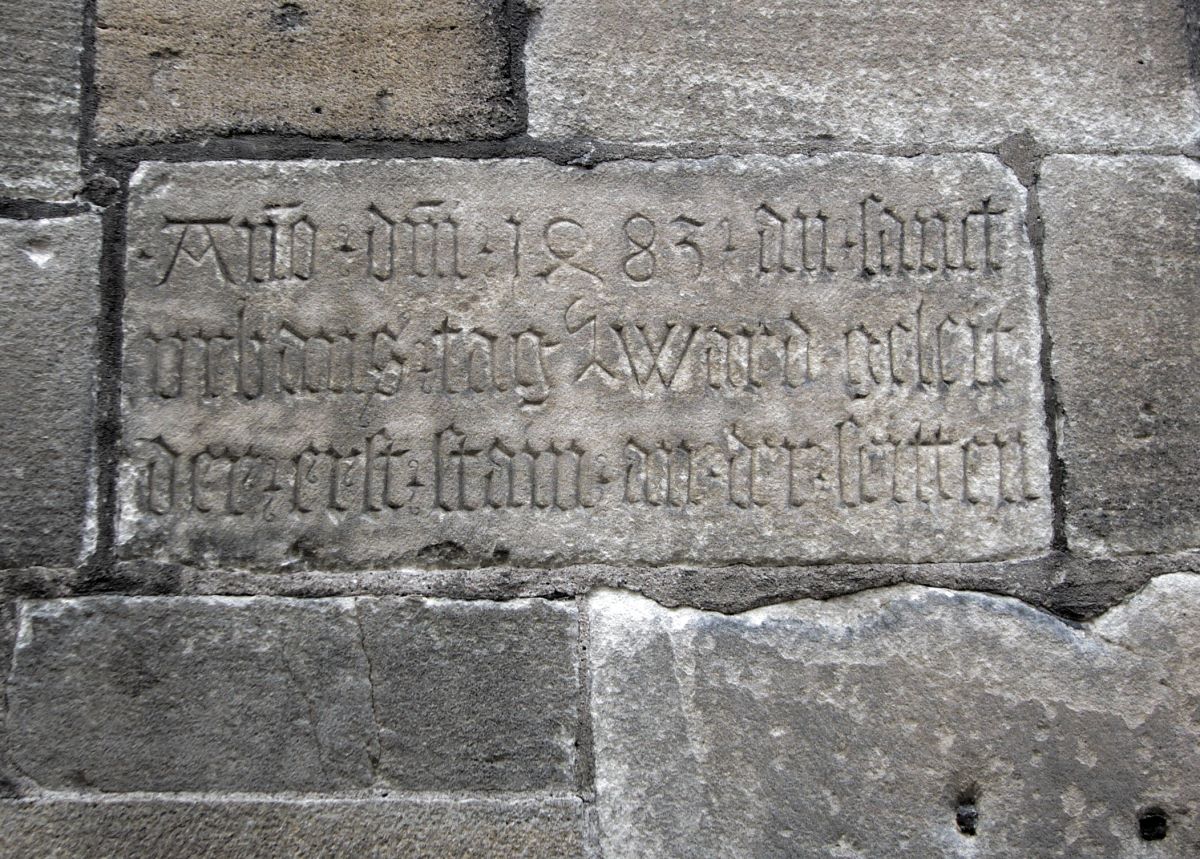 Año · dm̄ · 1483 · an · sanct
vrbans · tag · Ward geleit
der · erst · stam · an · dr · seÿtten